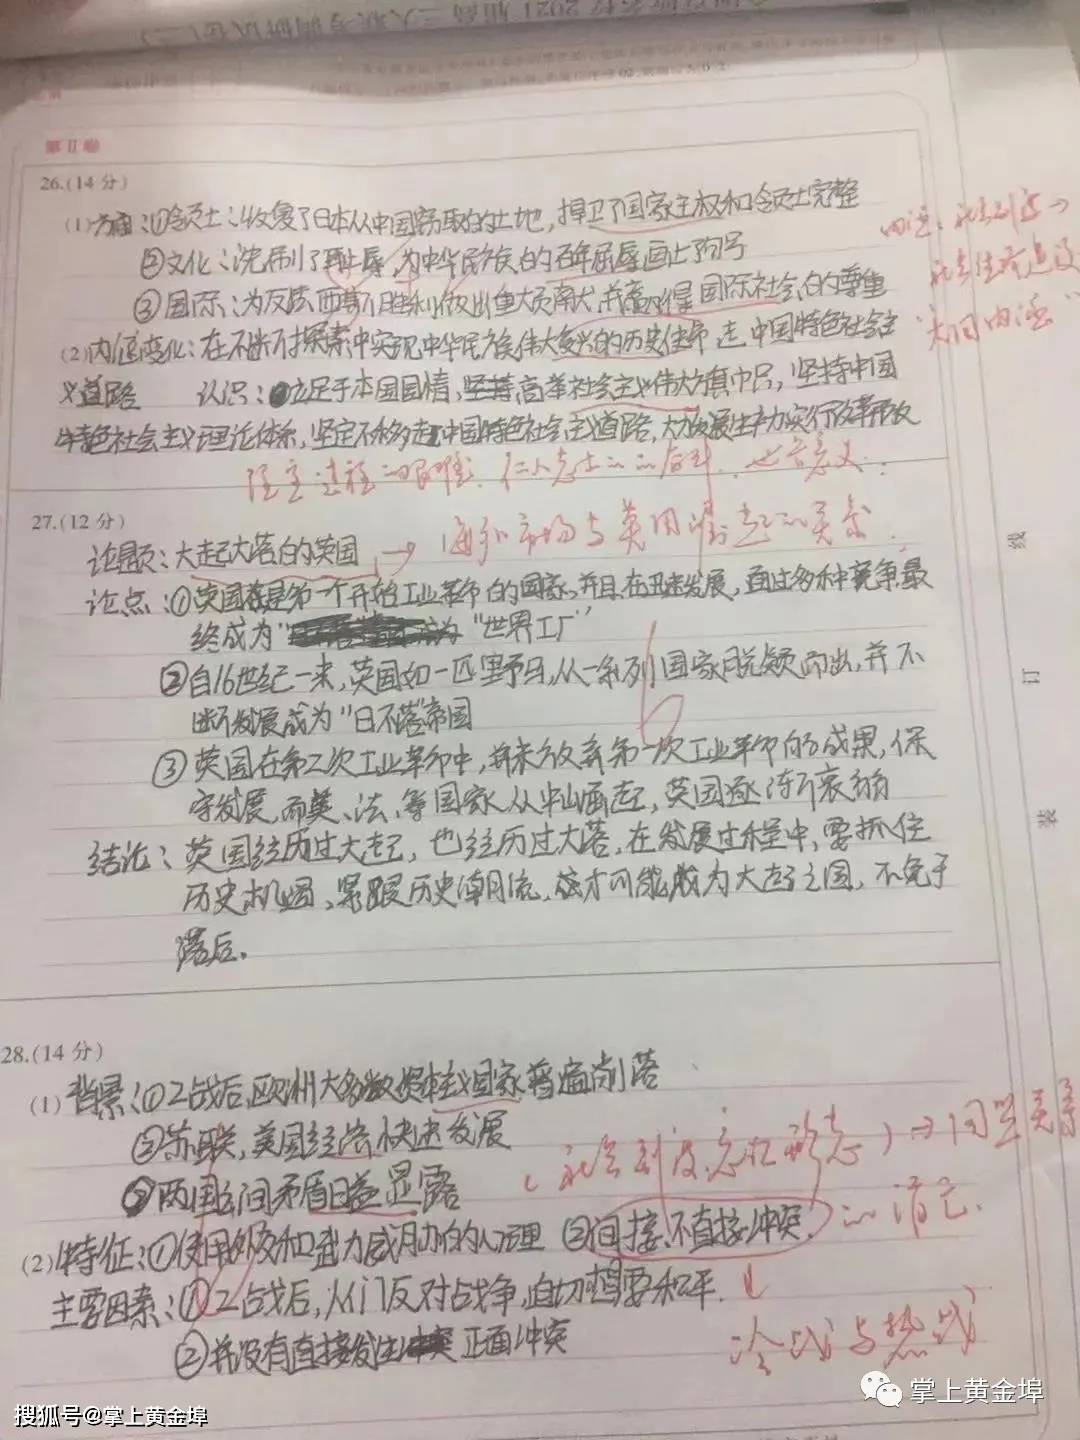 第Ⅱ卷
26.(14分)
(1)方面:①领土:收复了日本从中国窃取的土地,捍卫了国家主权和领土完整
②文化:洗刷了耻辱,为中华民族的百年屈辱画上了句号
③国际:为反法西斯胜利做出重大贡献,并赢得国际社会的尊重
(2)内涵变化:在不断探索中实现中华民族伟大复兴的历史使命 走中国特色社会主
义道路 认识:立足于本国国情,坚持高举社会主义伟大旗帜,坚持中国
特色社会主义理论体系,坚定不移走中国特色社会主义道路,大力发展生产力实行改革开放
27.(12分)
论题:大起大落的英国 → 海外市场与英国崛起的关系
论点:①英国是第一个开始工业革命的国家,并且在迅速发展,通过多种竞争,最
终成为“世界工厂”
②自16世纪一来,英国如一匹野马,从一系列国家脱颖而出,并不
断发展成为“日不落”帝国
③英国在第二次工业革命中,并未放弃第一次工业革命的成果,保
守发展,而美、法、等国家从中崛起,英国逐渐衰弱
结论:英国经历过大起,也经历过大落,在发展过程中,要抓住
历史机遇,紧跟历史潮流,才可能成为大起之国,不免于
落后.
28.(14分)
(1)背景:①二战后,欧洲大多数资本主义国家普遍削落
②苏联,美国经济快速发展
③两国之间矛盾日益显露
(社会制度,意识形态)→同盟关系
的消亡.
(2)特征:①使用以及和武力威胁的心理 ②间接、不直接冲突.
主要因素:①二战后,人们反对战争,迫切想要和平.
②并没有直接发生正面冲突
冷战与热战
线
订
装
搜狐号@掌上黄金埠
掌上黄金埠